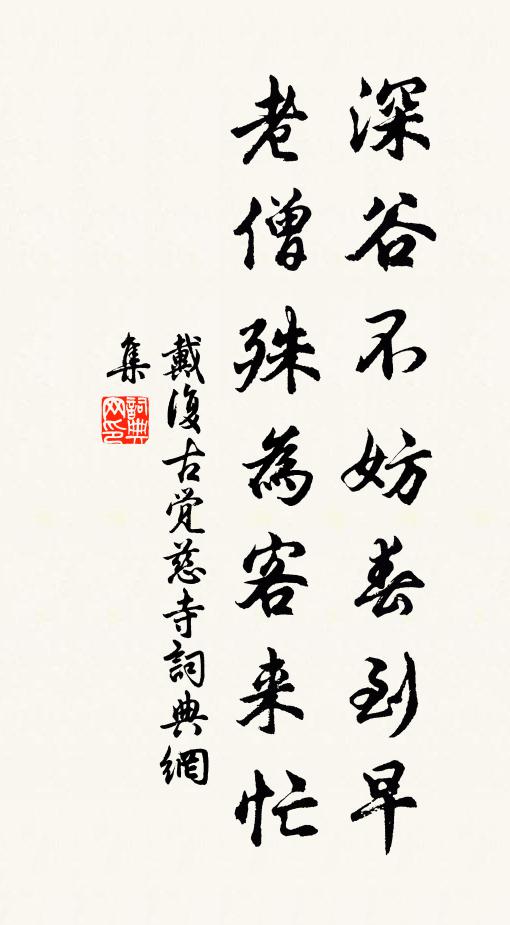 深谷不妨春到早
老僧殊為客来忙
戴復古覚慈寺詞典網
集
詞典网印